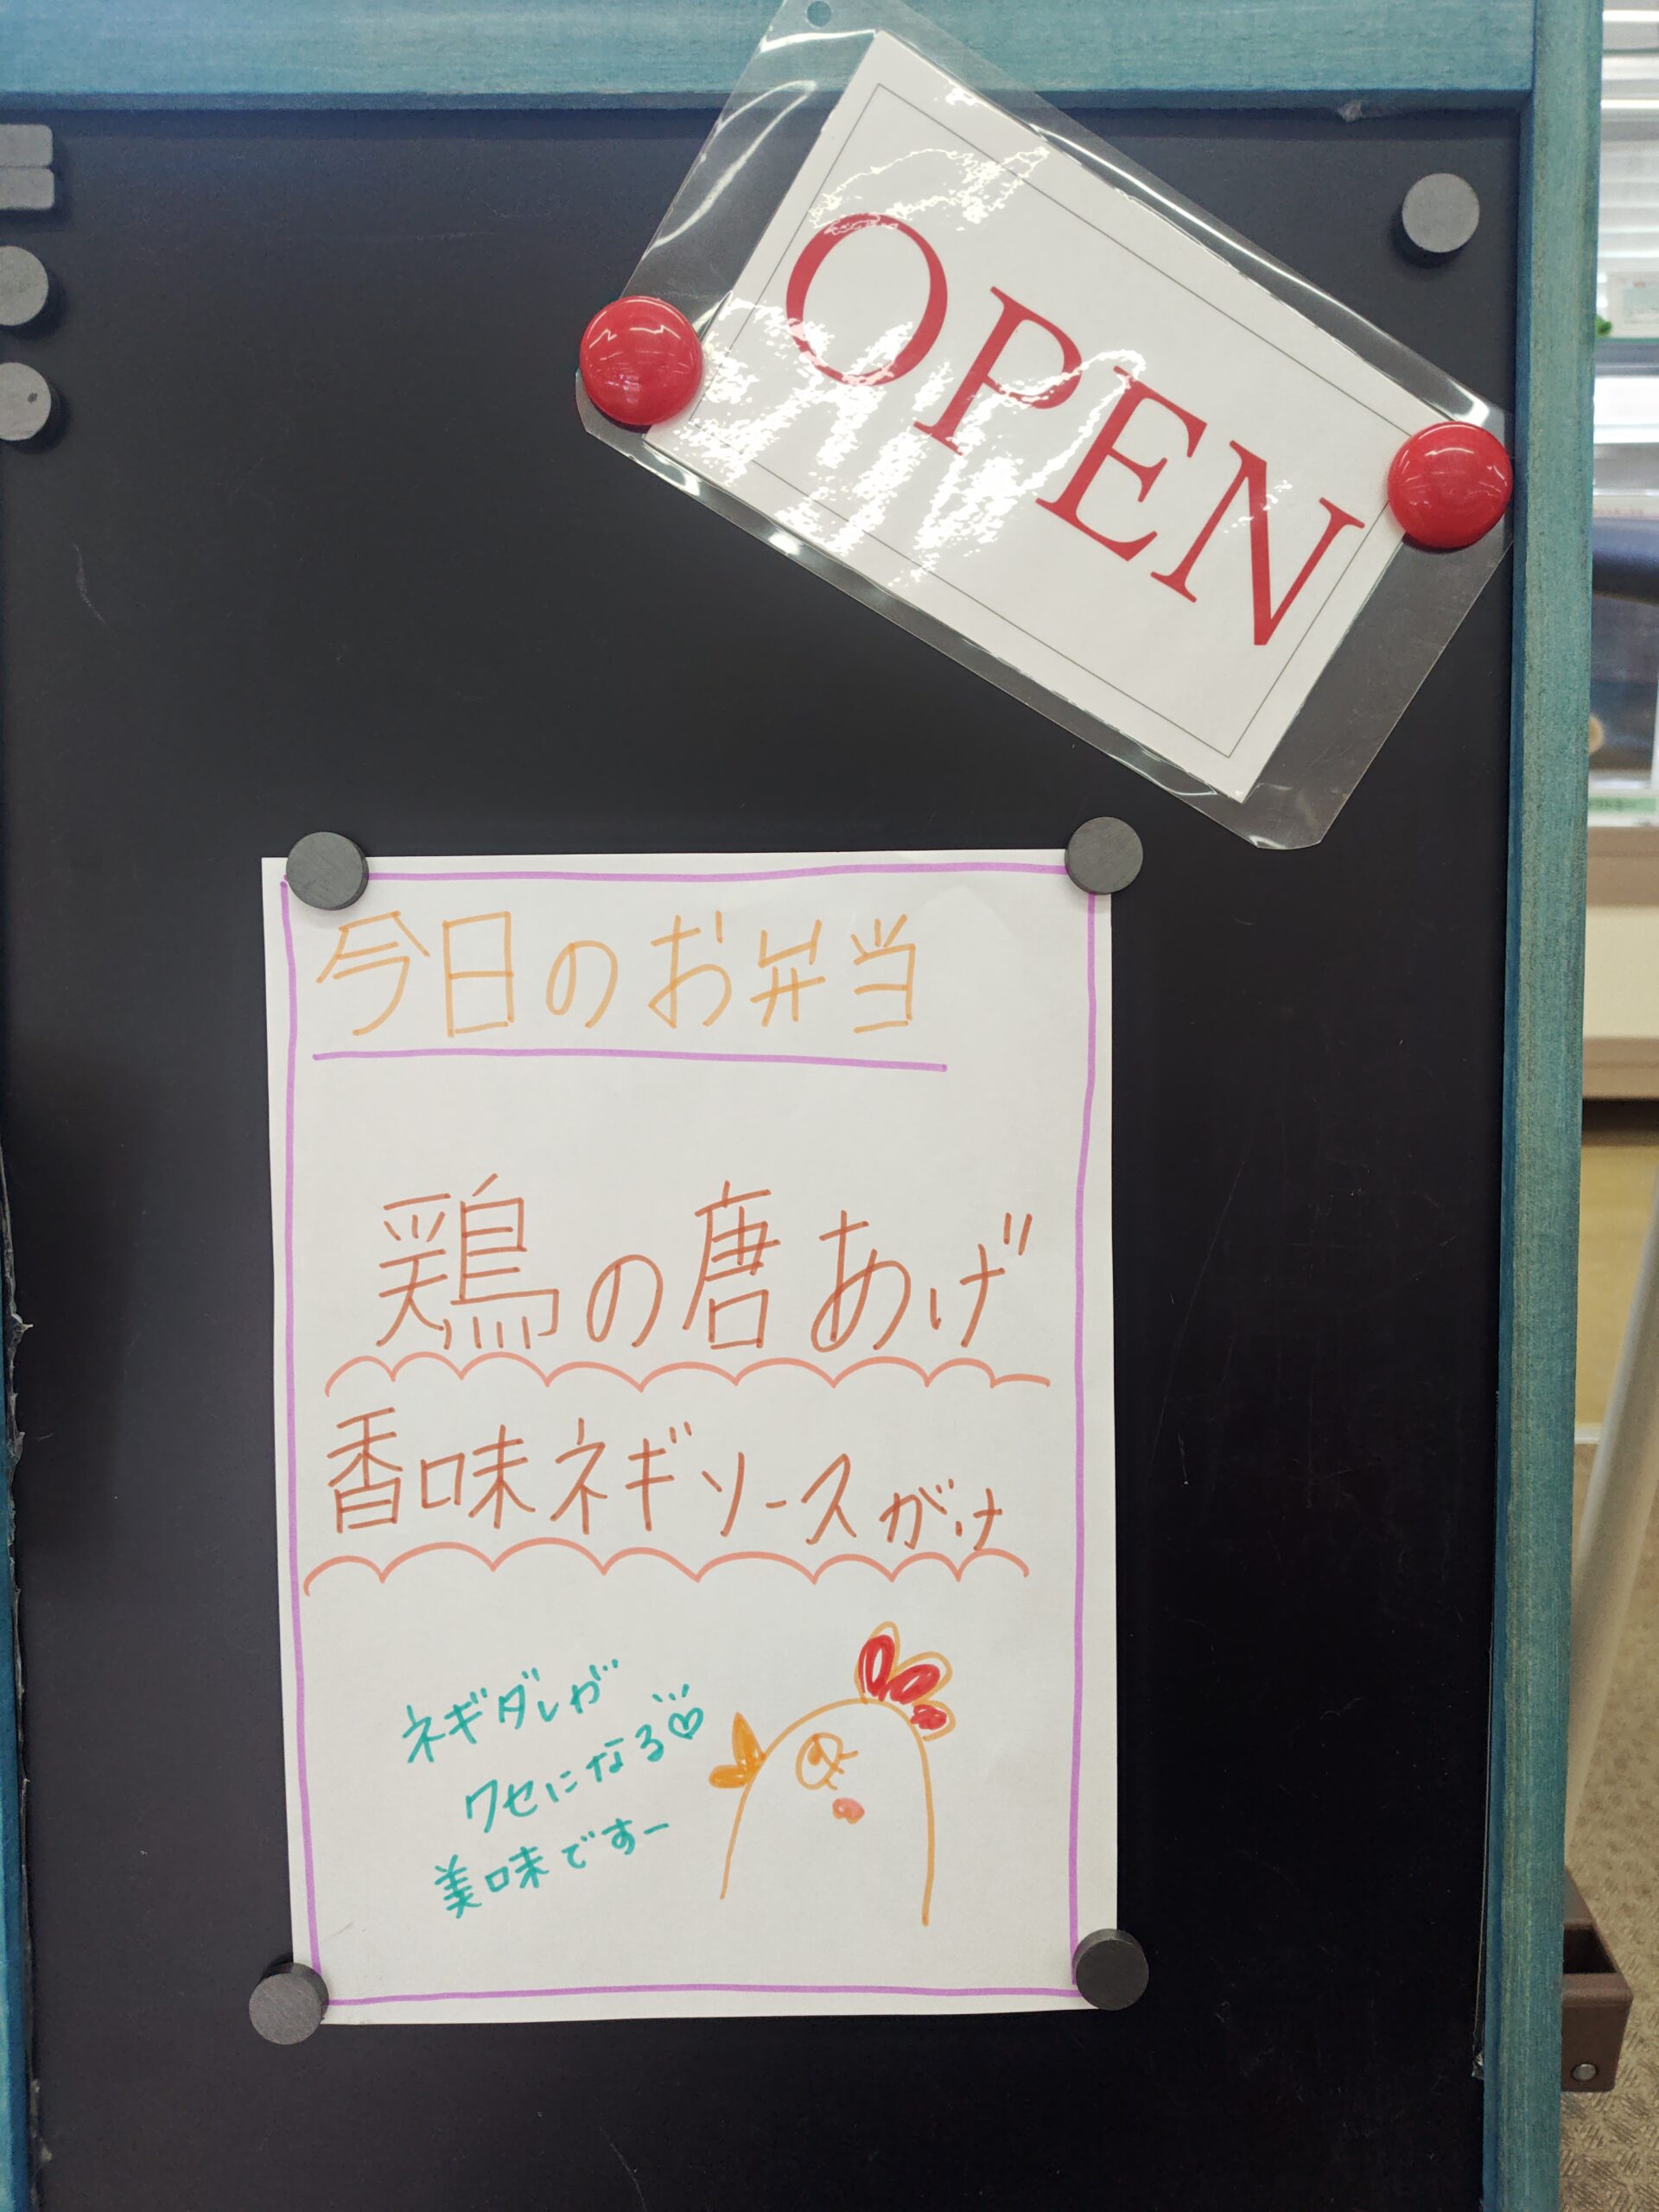 OPEN
今日のお弁当
鶏の唐あげ
香味ネギソースがけ
ネギダレが
クセになる♡
美味ですー